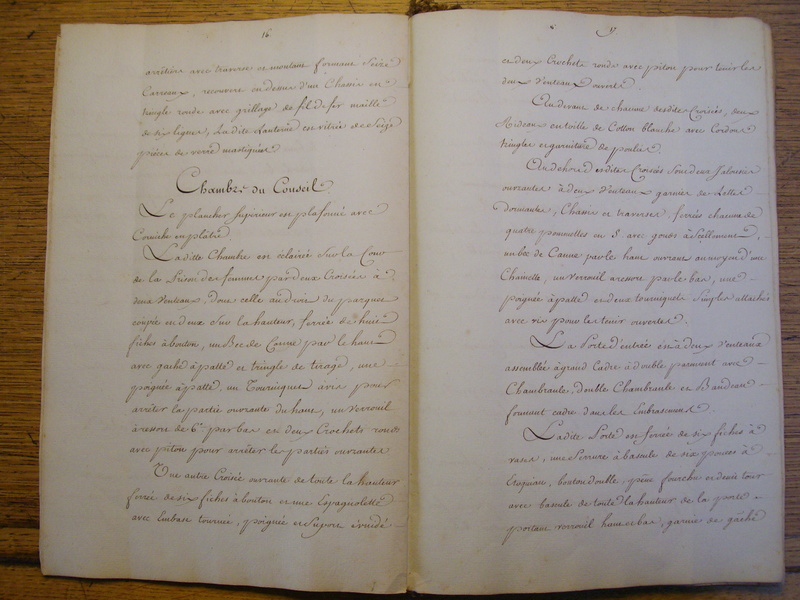 16
arrêtiere avec traverse et montant formant Seize
Carreaux, recouvere en dessus d'un Chassis en
tringle ronde avec grillage de fil de fer maille
de six lignes, Ladite Lanterne est vitrée de Seize
pièces de verre mastiquées
Chambre du Conseil
Le plancher Supérieur est plafonné avec
Corniche en plâtre
Laditte Chambre est éclairée Sur la Cour
de la Prison des femmes par deux Croisées à
deux Venteaux, dont celle au droit du parquet
coupée en deux Sur la hauteur, ferrée de huit
fiches à bouton, un Bec de Canne par le haut
avec gache à patte et tringle de tirage, une
poignée à patte, un Tourniquet à vis pour
arrêter la partie ouvrante du haut, un verrouil
à ressort de 6° par bas et deux Crochets ronds
avec piton pour arrêter les parties ouvrantes
Une autre Croisée ouvrante de toute la hauteur
ferrée de six fiches à bouton et une Espagnolette
avec Embase tournée, poignée et Suport évuidé
17
et deux Crochets ronds avec piton pour tenir les
deux Venteaux ouverts
Au devant de chacune desdites Croisées, deux
Rideaux en toille de Cotton blanche avec Cordons
tringles et garniture de poulies
Au dehors desdites Croisées Sont deux Jalousies
ouvrantes à deux Venteaux garnies de Lattes
Dormantes, Chassis et traverses, ferrées chacune de
quatre pommelles en S avec gonds à Scellement,
un bec de Canne par le haut ouvrant au moyen d'une
Chainette, un verrouil à ressort par le bas, une
poignée à patte et deux tourniquets Simples attachés
avec vis pour les tenir ouvertes
La Porte d'entrée est à deux Venteaux
assemblée à grand Cadre à double parement avec
Chambranle, double Chambranle et Bandeau
formant cadre dans les Embrasements
Ladite Porte est ferrée de six fiches à
vases, une Serrure à bascule de six pouces à
Crapiaux, bouton double, pêne fourchu et demi tour
avec bascule de toute la hauteur de la porte
portant verrouil haut et bas, garnie de gâche